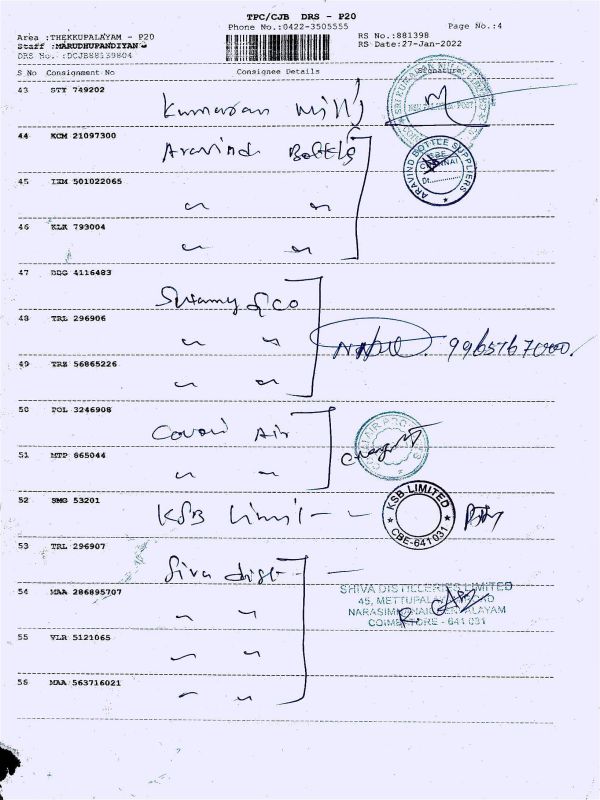 TPC/CJB DRS - P20
Phone No.:0422-3505555
Page No.:4
Area :THEKKUPALAYAM - P20
Staff :MARUDHUPANDIYAN
DRS No. :DCJB88139804
RS No.:881398
RS Date:27-Jan-2022
S No Consignment No Consignee Details Signature
43 STY 749202 Kumaran Mill
44 KCM 21097300 Aravind Bottle
ARAVIND BOTTLE SUPPLIERS
CBE
CHENNAI
45 IXM 501022065 〃 〃
46 KLK 793004 〃 〃
47 DDG 4116483 Swamy & co
48 TRL 296906 〃 〃
49 TRZ 56865226 〃 〃
50 POL 3246908 Covai Air
51 MTP 865044 〃 〃
52 SMG 53201 KSB Limit - -
KSB LIMITED
CBE-641031
53 TRL 296907 Siva dist -
54 MAA 286895707 〃 〃
SHIVA DISTILLERIES LIMITED
45, METTUPALAYAM ROAD
COIMBATORE - 641 031
55 VLR 5121065 〃 〃
56 MAA 563716021 〃 〃